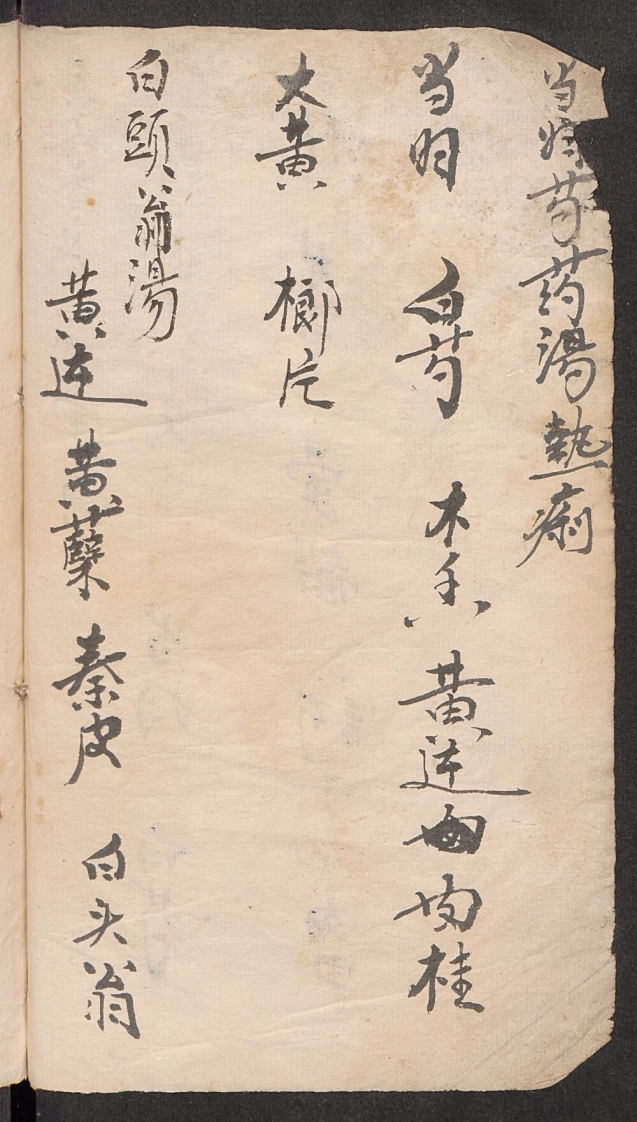 当归芍药湯熱痢
当归 白芍 木香 黄連 肉桂
大黄 榔片
白頭翁湯
黄連 黄蘗 秦皮 白头翁